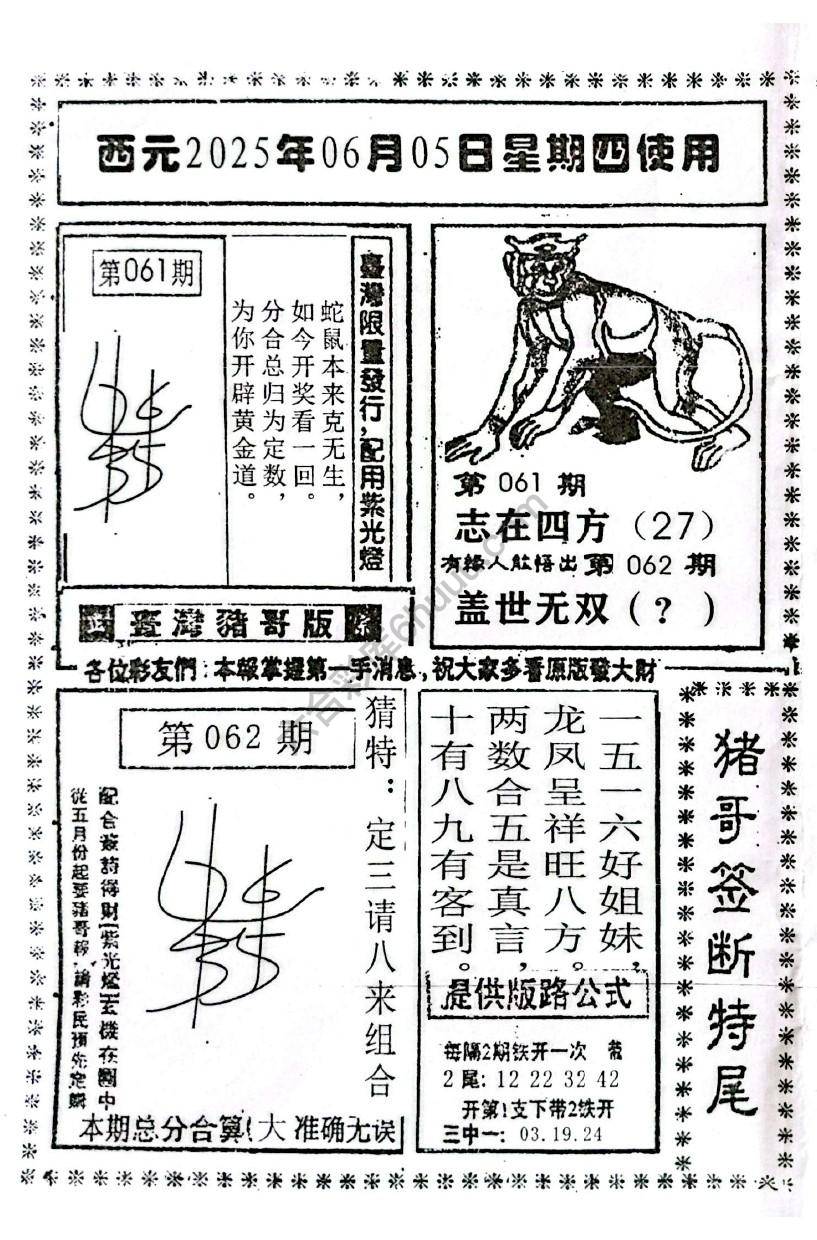 西元2025年06月05日星期四使用
第061期
臺灣限量發行，配用紫光燈
蛇鼠本来克无生，
如今开奖看一回。
分合总归为定数，
为你开辟黄金道。
臺灣豬哥版
第 061 期
志在四方（27）
有緣人能悟出 第 062 期
盖世无双（？）
各位彩友們：本報掌握第一手消息，祝大家多看原版發大財
第 062 期
猜特：定三请八来组合
配合簽詩得財 紫光燈 玄機在圖中
從五月份起要豬哥報，請彩民預先定購
本期总分合算（大 准确无误
一五一六好姐妹，
龙凤呈祥旺八方。
两数合五是真言，
十有八九有客到。
提供版路公式
每隔2期铁开一次 带
2尾: 12 22 32 42
开第1支下带2铁开
三中一: 03.19.24
猪哥签断特尾
六合彩库6huuu.com